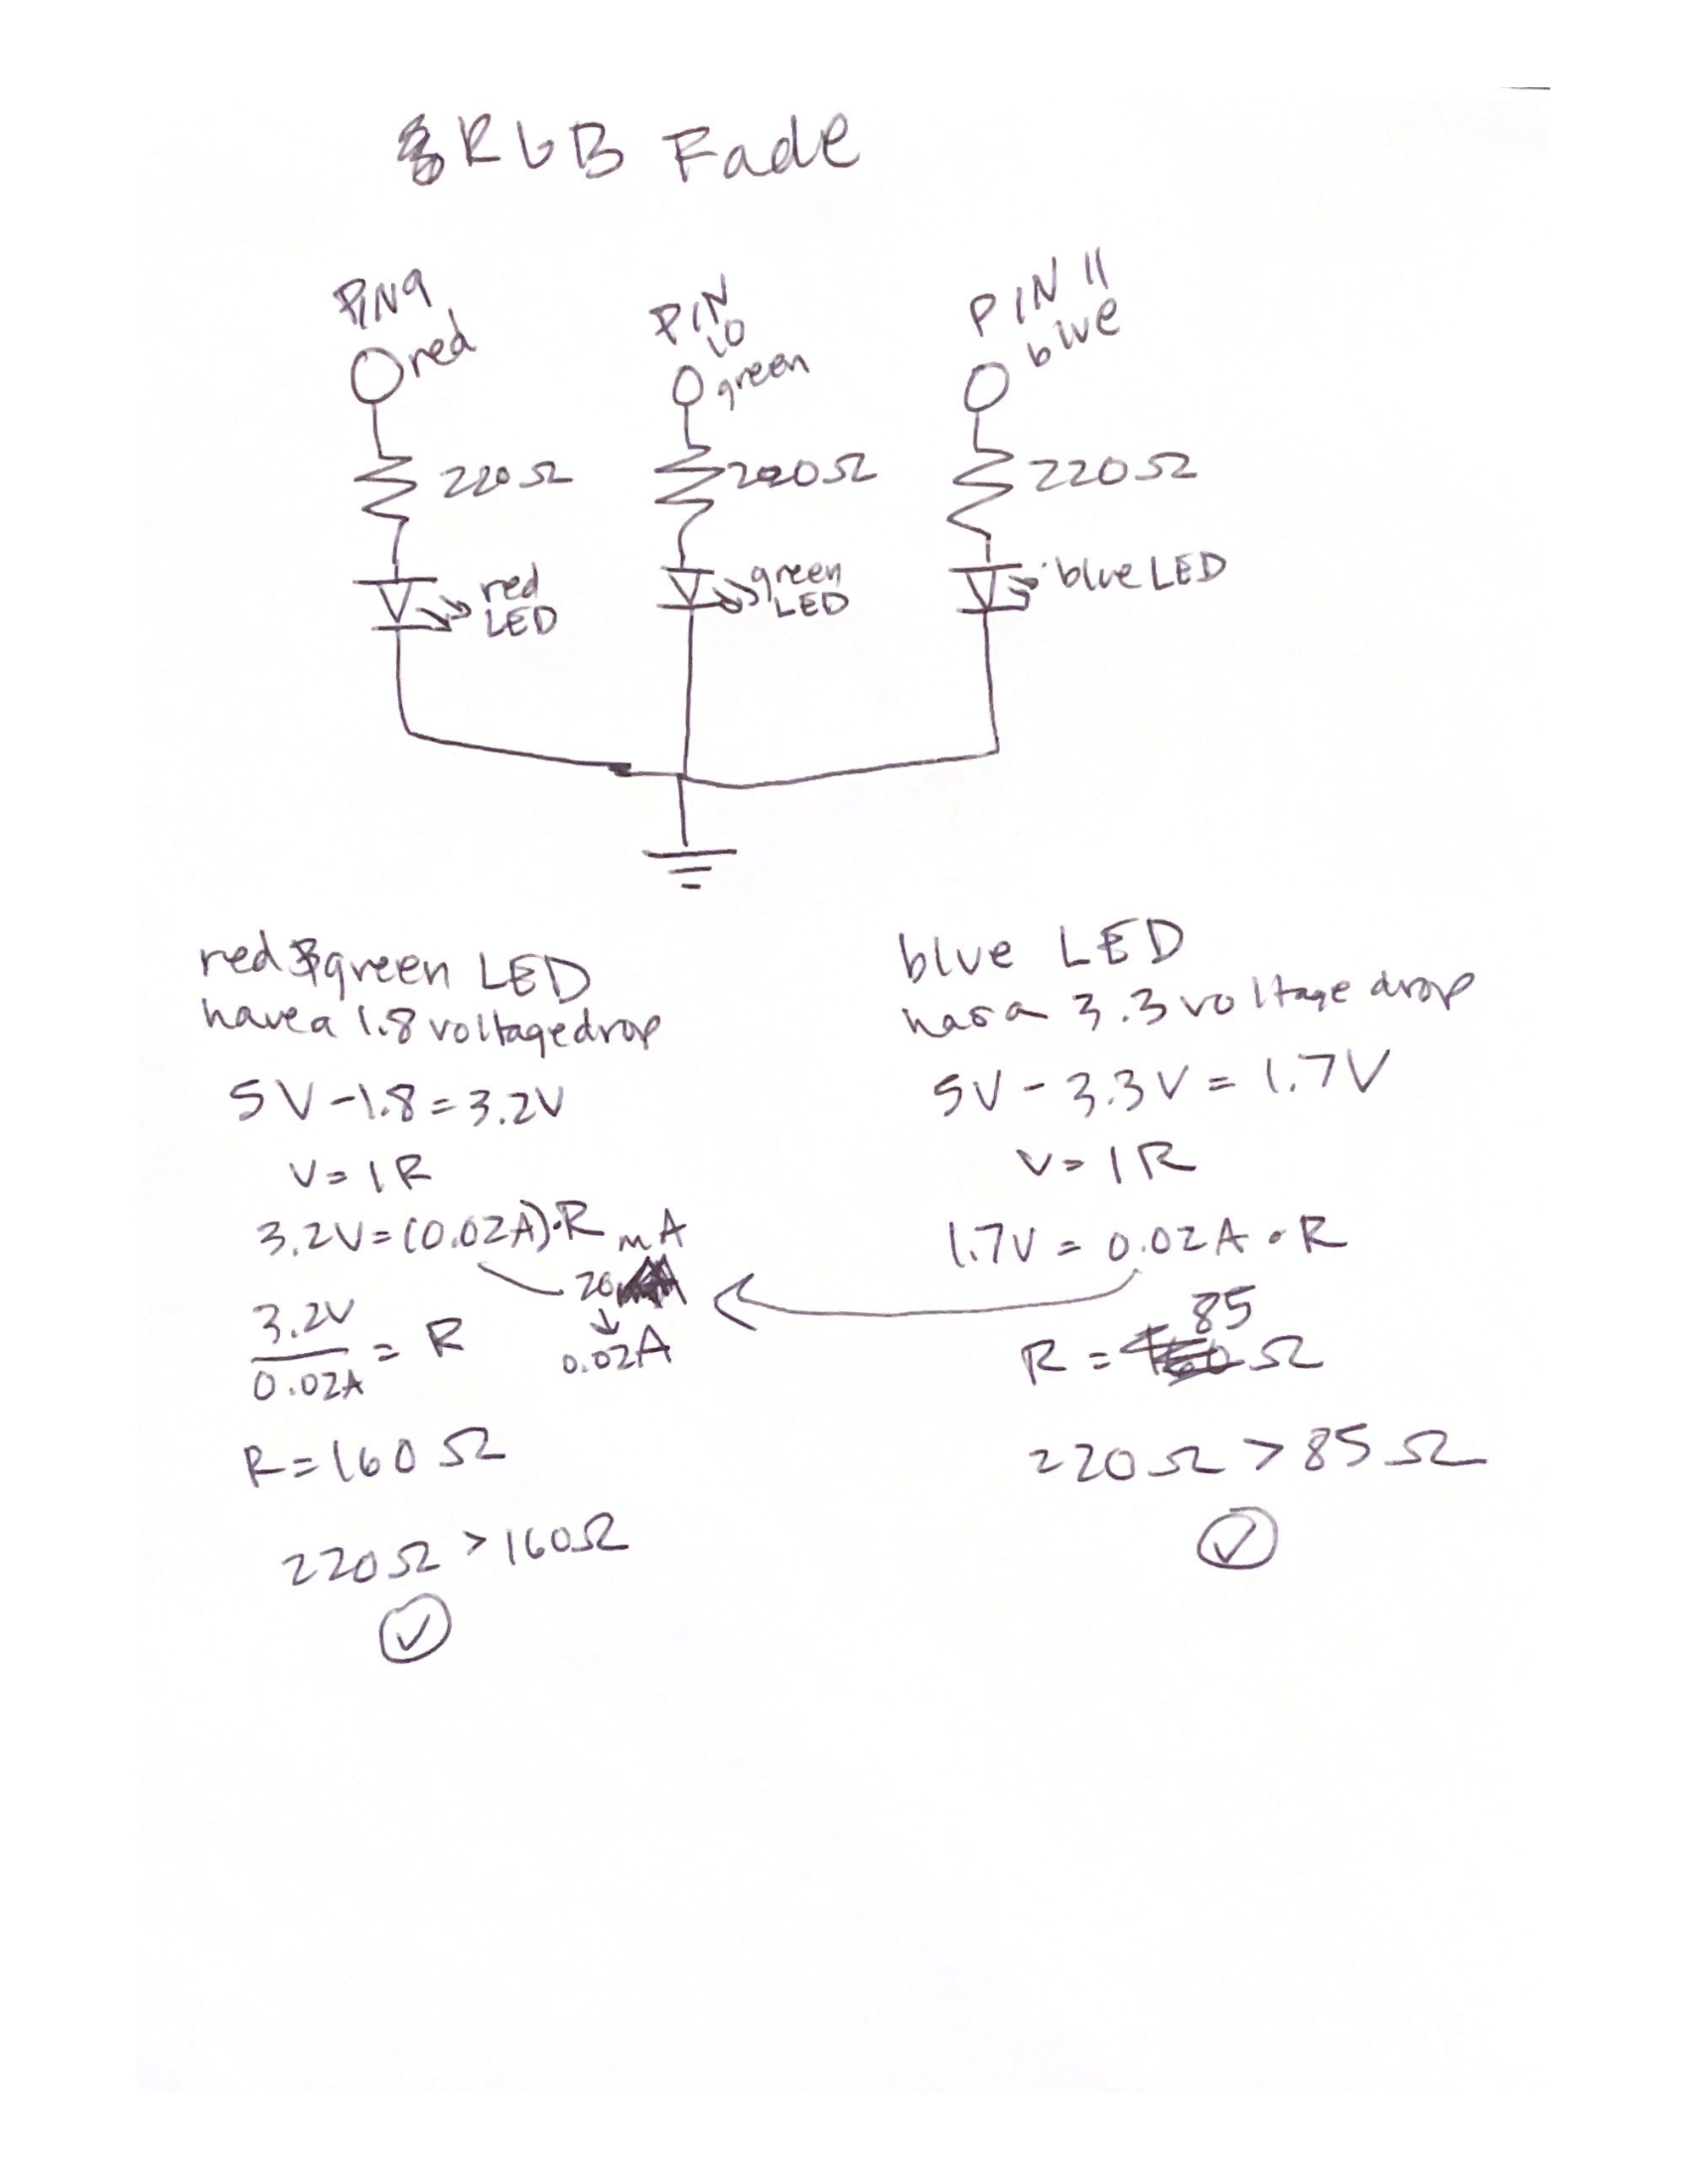 RGB Fade
PIN9
red
PIN
10
green
PIN 11
blue
220Ω
220Ω
220Ω
red
LED
green
LED
blue LED
red & green LED
have a 1.8 voltage drop
5V-1.8=3.2V
V=IR
3.2V=(0.02A)·R
mA
20
0.02A
3.2V
0.02A
= R
R=160Ω
220Ω > 160Ω
blue LED
has a 3.3 voltage drop
5V - 3.3V = 1.7V
V=IR
1.7V = 0.02A · R
85
R = Ω
220Ω > 85Ω